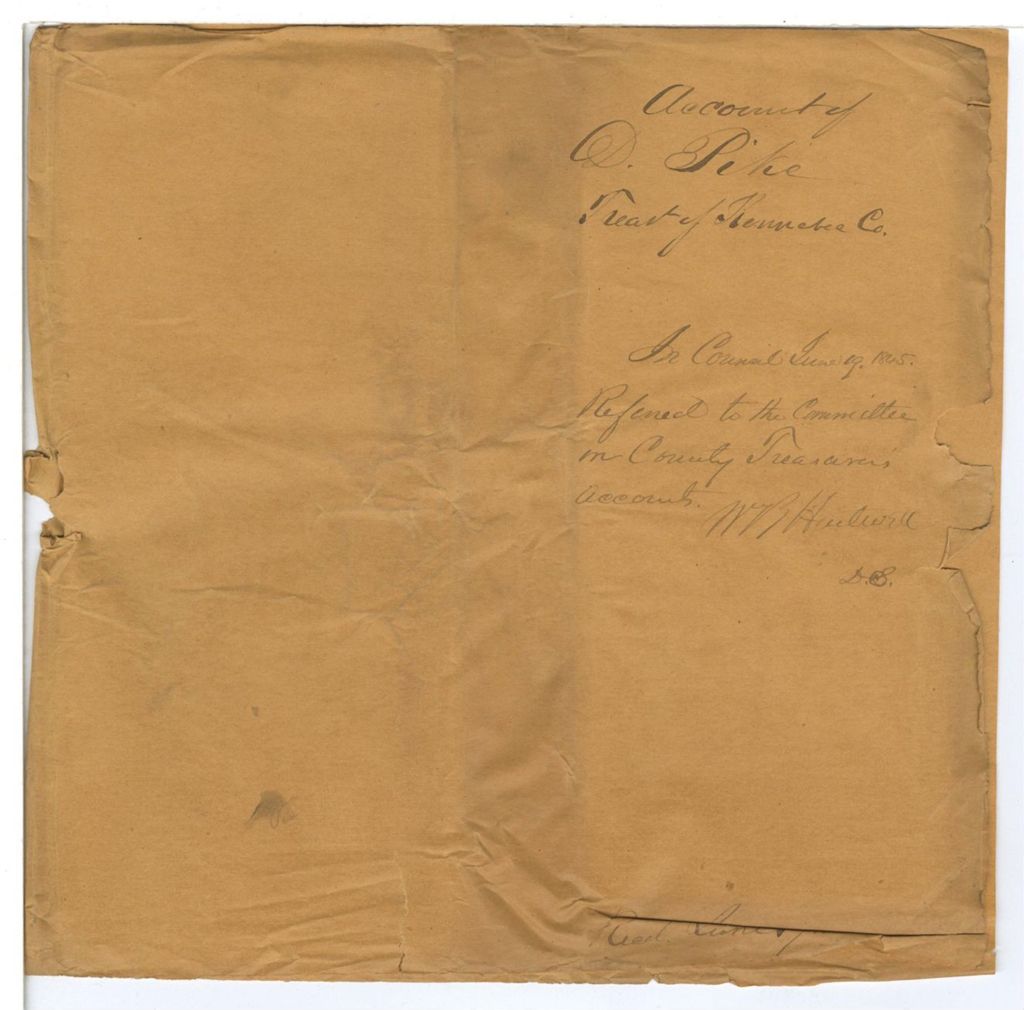 Account of
D. Pike
Treast of Kennebec Co.
In Council June 19. 1845.
Referred to the Committee
on County Treasurers
accounts.
D.S.
Recd. June